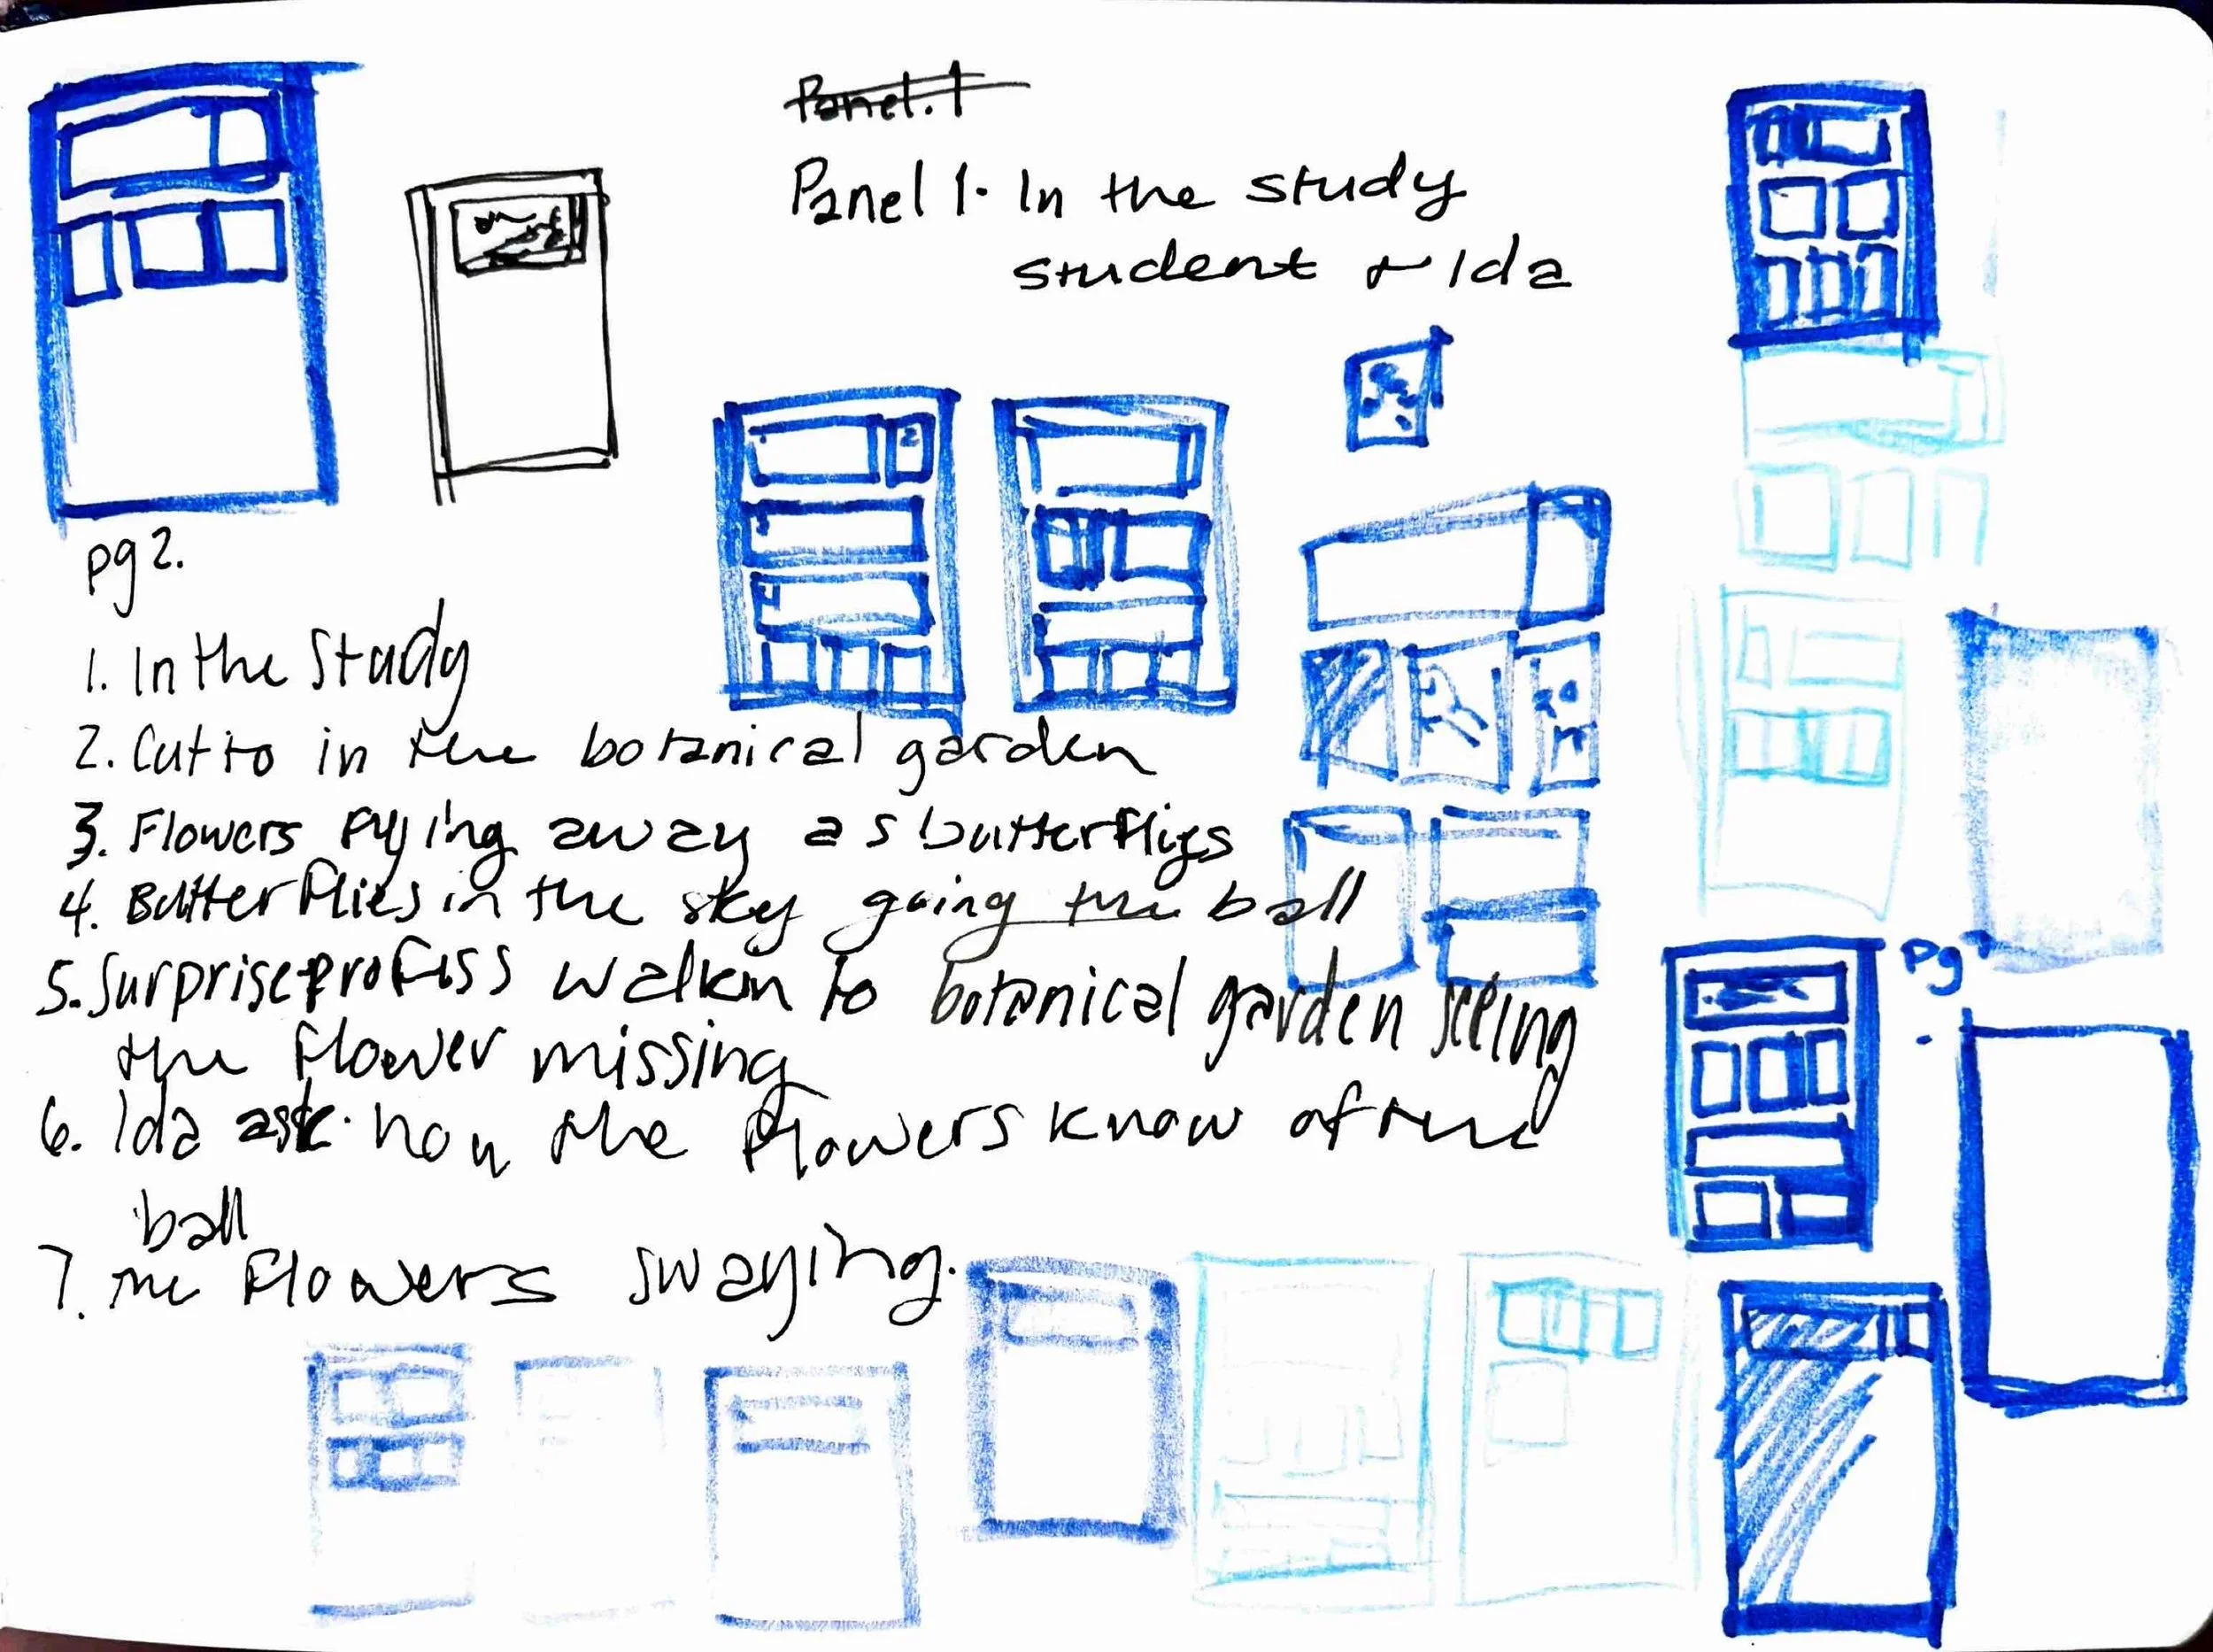 Panel. 1
Panel 1. In the study
student & Ida
2
pg 2.
1. In the Study
2. Cut to in the botanical garden
3. Flowers flying away as butterflies
4. Butterflies in the sky going the ball
5. Surprise profess walkin to botanical garden seeing
the flower missing
6. Ida ask how the flowers know of the
ball
7. The flowers swaying.
pg